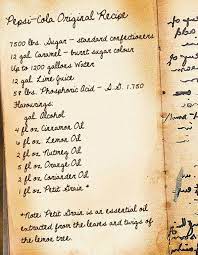 Pepsi-Cola Original Recipe
7500 lbs. Sugar - standard confectioners
12 gal. Caramel - burnt sugar colour
Up to 1200 gallons Water
12 gal. Lime Juice
58 lbs. Phosphoric Acid - S.G. 1.750
Flavourings:
gal. Alcohol
4 fl oz Cinnamon Oil
4 fl oz Lemon Oil
2 fl oz Nutmeg Oil
5 fl oz Orange Oil
2 fl oz Coriander Oil
1 fl oz Petit Grain *
*Note: Petit Grain is an essential oil
extracted from the leaves and twigs of
the lemon tree.